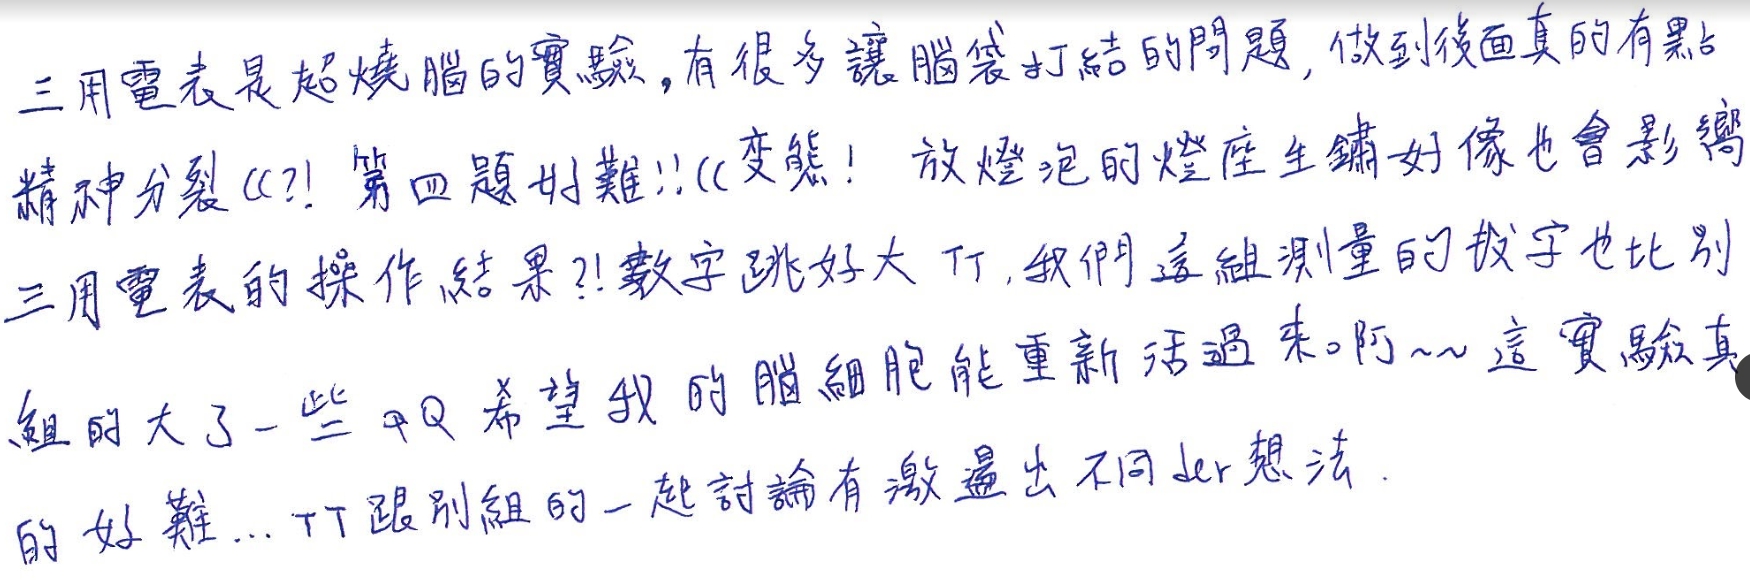 三用電表是超燒腦的實驗,有很多讓腦袋打結的問題,做到後面真的有點
精神分裂((?! 第四題好難!!((変態! 放燈泡的燈座生鏽好像也會影響
三用電表的操作結果?!數字跳好大 TT,我們這組測量的数字也比別
組的大了一些 QQ 希望我的腦細胞能重新活過來。阿~~這實驗真
的好難... TT跟別組的一起討論有激盪出不同der想法.